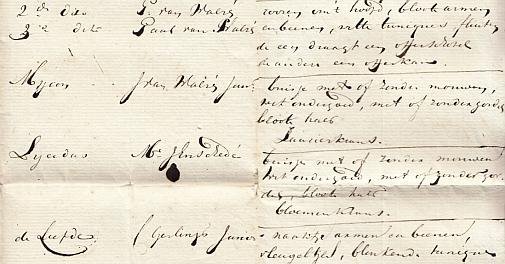 2de dito P. van Walré voren om't hoofd, bloote armen
3de dito Paul van Walré en beenen, witte tuniques
de een draagt een offerschotel
de andere een offerkan.
Mycon J van Walré Junr buisje met of zonder mouwen,
wit ondergoed, met of zonder gordel
bloote hals
Laurierkrans.
Lycidas Mr J Enschedé buisje met of zonder mouwen
wit ondergoed, met of zonder gor-
del, bloote hals
bloemenkrans.
de Liefde Gerlings Junior naakte armen en beenen,
vleugeltjes, blinkende tunique